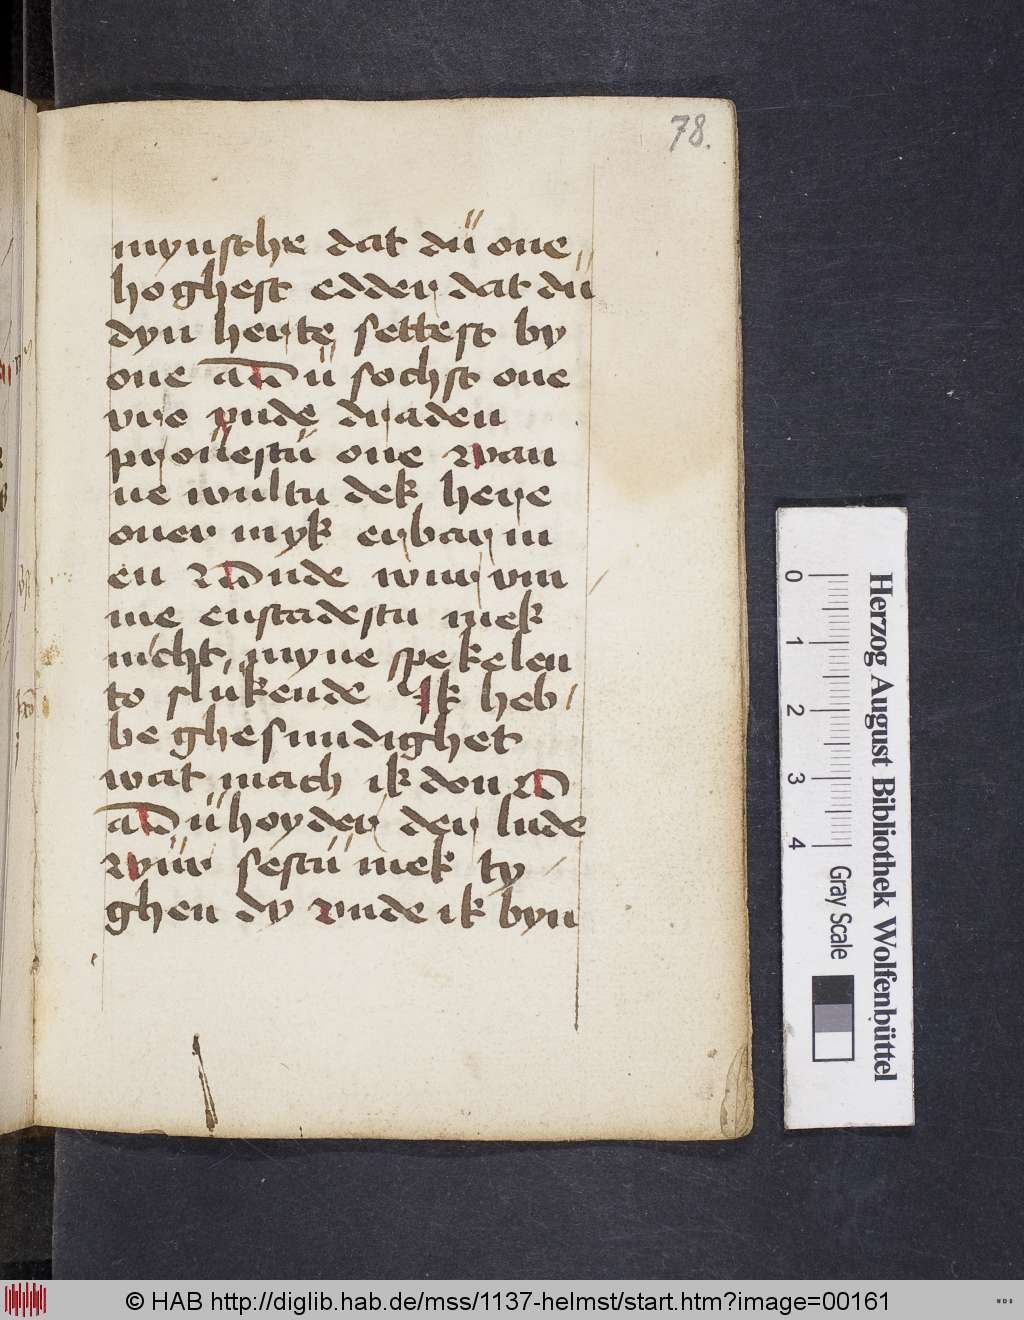 78.
mynsche dat dü one
hoghest edder dat dü
dyn herte settest by
one ü sochst one
vre vnde draden
pröuestü one wan
ne wultu dek here
ouer myk erbarm
en wur vm
me enstadestu mek
nicht myne spekelen
to slukende Ik heb
be ghesundighet
wat mach ik don
ü hoyder der lude
wür sestü mek ty
ghen dy vnde ik byn
0 1 2 3 4
Gray Scale
Herzog August Bibliothek Wolfenbüttel
© HAB http://diglib.hab.de/mss/1137-helmst/start.htm?image=00161